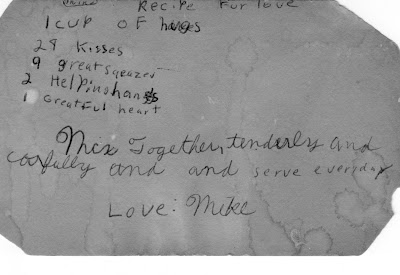 Recipe Fur love
1 cup OF huges
29 Kisses
9 greatsqeazes
2 Helpinghands
1 Greatful heart
Mix Together, tenderly and
carfully and and serve everyday
Love: Mike